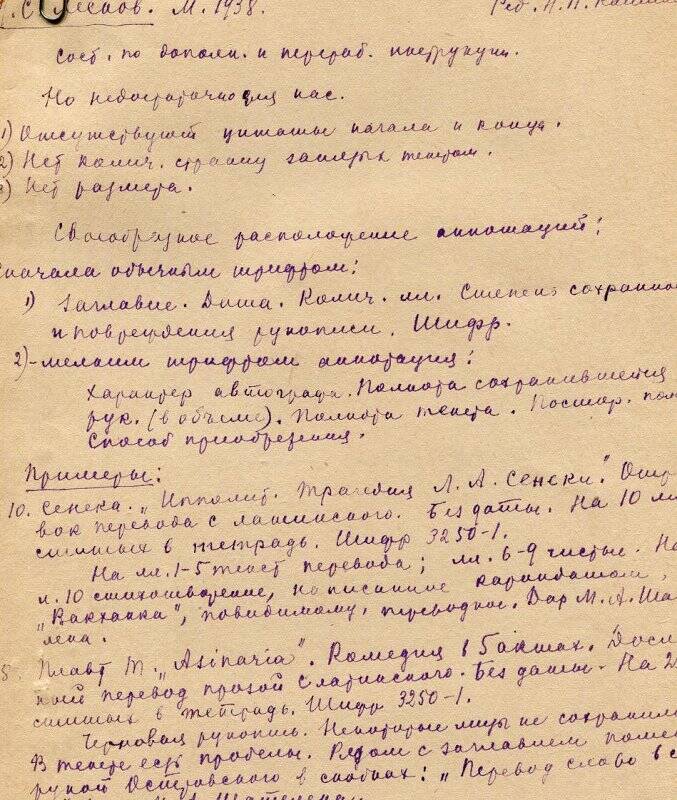 С. Лесков. М. 1938. Ред. Н. П. Кашин
сост. по дополн. и перераб. инструкции.
Но недостаточно для нас.
1) Отсутствуют цитаты начала и конца.
2) Нет колич. страниц занятых текстом.
3) Нет размера.
Своеобразное расположение аннотаций:
Сначала обычным шрифтом:
1) Заглавие. Дата. Колич. лл. Степень сохранно
и повреждения рукописи. Шифр.
2) - мелким шрифтом аннотация:
Характер автографа. Полнота сохранившейся
рук. (в объеме). Полнота текста. Постор. пом
Способ приобретения.
Примеры:
10. Сенека. „Ипполит. Трагедия Л. А. Сенеки". Отры
вок перевода с латинского. Без даты. На 10 лл.
сшитых в тетрадь. Шифр 3250-1.
На лл. 1-5 текст перевода; лл. 6-9 чистые. На
л. 10 стихотворение, написанное карандашом,
„Вакханка", повидимому, переводное. Дар М. А. Ша
лена.
5. Плавт Т. „Asinaria". Комедия в 5 актах. Досл
ный перевод прозой с латинского. Без даты. На 2
сшитых в тетрадь. Шифр 3250-1.
Черновая рукопись. Некоторые лизы не сохранил
В тексте есть пробелы. Рядом с заглавием помет
рукой Островского в скобках: „Перевод слово в с
Шателена